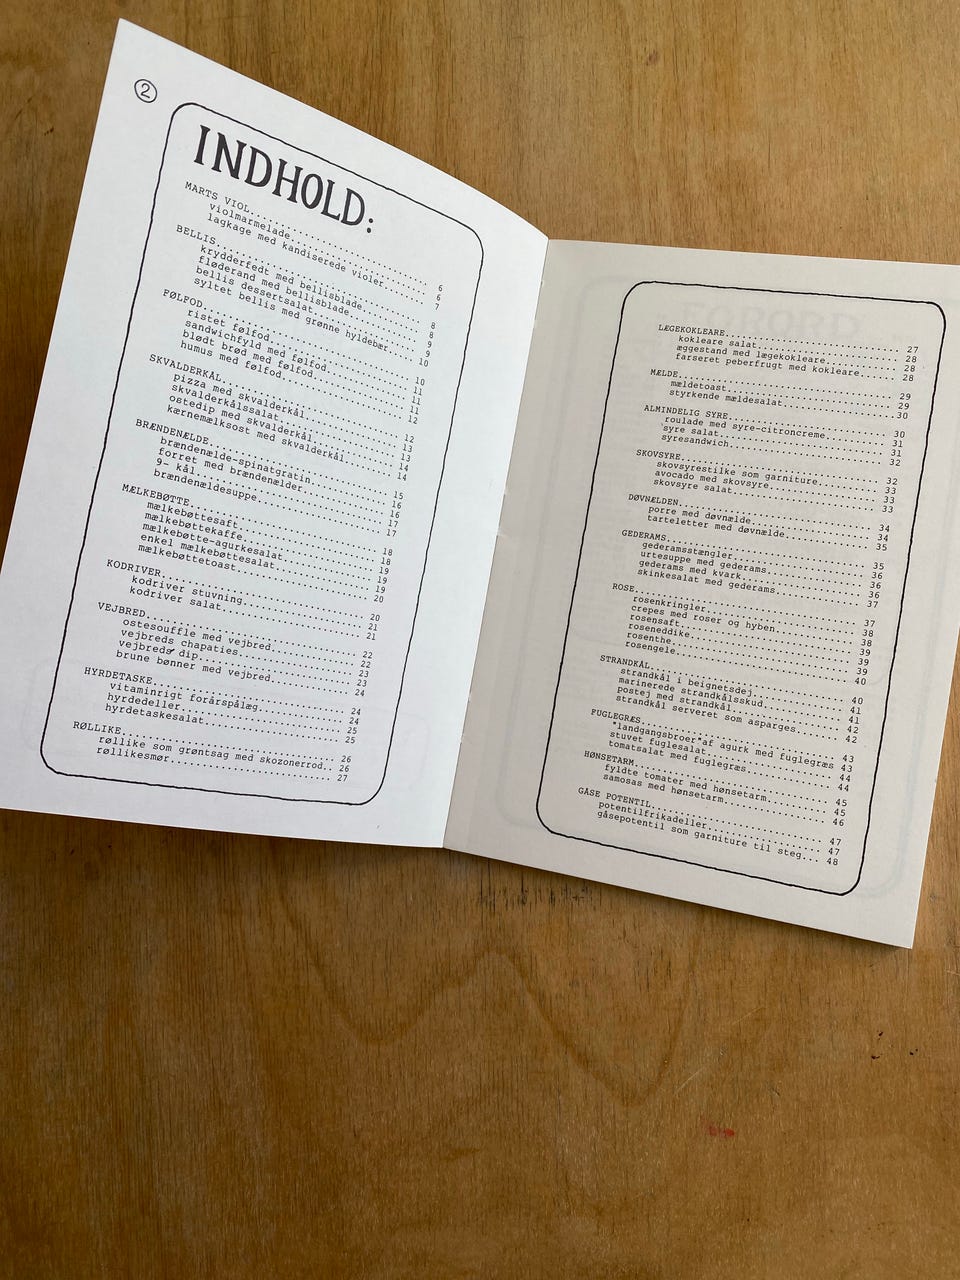 2
INDHOLD:
MARTS VIOL........................ 6
violmarmelade..................... 6
lagkage med kandiserede violer.... 7
BELLIS............................ 8
krydderfedt med bellisblade....... 8
fløderand med bellisblade......... 9
bellis dessertsalat............... 9
syltet bellis med grønne hyldebær.... 10
FØLFOD............................ 10
ristet følfod..................... 11
sandwichfyld med følfod........... 11
blødt brød med følfod............. 11
humus med følfod.................. 12
SKVALDERKÅL....................... 12
pizza med skvalderkål............. 13
skvalderkålssalat................. 13
ostedip med skvalderkål........... 14
kærnemælksost med skvalderkål..... 14
BRÆNDENÆLDE....................... 15
brændenælde-spinatgratin.......... 16
forret med brændenælder........... 16
9- kål............................ 17
brændenældesuppe.................. 17
MÆLKEBØTTE........................ 18
mælkebøttesaft.................... 18
mælkebøttekaffe................... 19
mælkebøtte-agurkesalat............ 19
enkel mælkebøttesalat............. 19
mælkebøttetoast................... 20
KODRIVER.......................... 20
kodriver stuvning................. 21
kodriver salat.................... 21
VEJBRED........................... 22
ostesouffle med vejbred........... 22
vejbreds chapaties................ 23
vejbreds dip...................... 23
brune bønner med vejbred.......... 24
HYRDETASKE........................ 24
vitaminrigt forårspålæg........... 24
hyrdedeller....................... 25
hyrdetaskesalat................... 25
RØLLIKE........................... 26
røllike som grøntsag med skozonerrod.. 26
røllikesmør....................... 27
LÆGEKOKLEARE...................... 27
kokleare salat.................... 28
æggestand med lægekokleare........ 28
farseret peberfrugt med kokleare.... 28
MÆLDE............................. 29
mældetoast........................ 29
styrkende mældesalat.............. 30
ALMINDELIG SYRE................... 30
roulade med syre-citroncreme...... 31
syre salat........................ 31
syresandwich...................... 32
SKOVSYRE.......................... 32
skovsyrestilke som garniture...... 33
avocado med skovsyre.............. 33
skovsyre salat.................... 33
DØVNÆLDEN......................... 34
porre med døvnælde................ 34
tarteletter med døvnælde.......... 35
GEDERAMS.......................... 35
gederamsstængler.................. 36
urtesuppe med gederams............ 36
gederams med kvark................ 36
skinkesalat med gederams.......... 37
ROSE.............................. 37
rosenkringler..................... 38
crepes med roser og hyben......... 38
rosensaft......................... 39
roseneddike....................... 39
rosenthe.......................... 39
rosengele......................... 40
STRANDKÅL......................... 40
strandkål i beignetsdej........... 41
marinerede strandkålsskud......... 41
postej med strandkål.............. 42
strandkål serveret som asparges... 42
FUGLEGRÆS......................... 43
"landgangsbroer"af agurk med fuglegræs 43
stuvet fuglesalat................. 44
tomatsalat med fuglegræs.......... 44
HØNSETARM......................... 45
fyldte tomater med hønsetarm...... 45
samosas med hønsetarm............. 46
GÅSE POTENTIL..................... 47
potentilfrikadeller............... 47
gåsepotentil som garniture til steg... 48